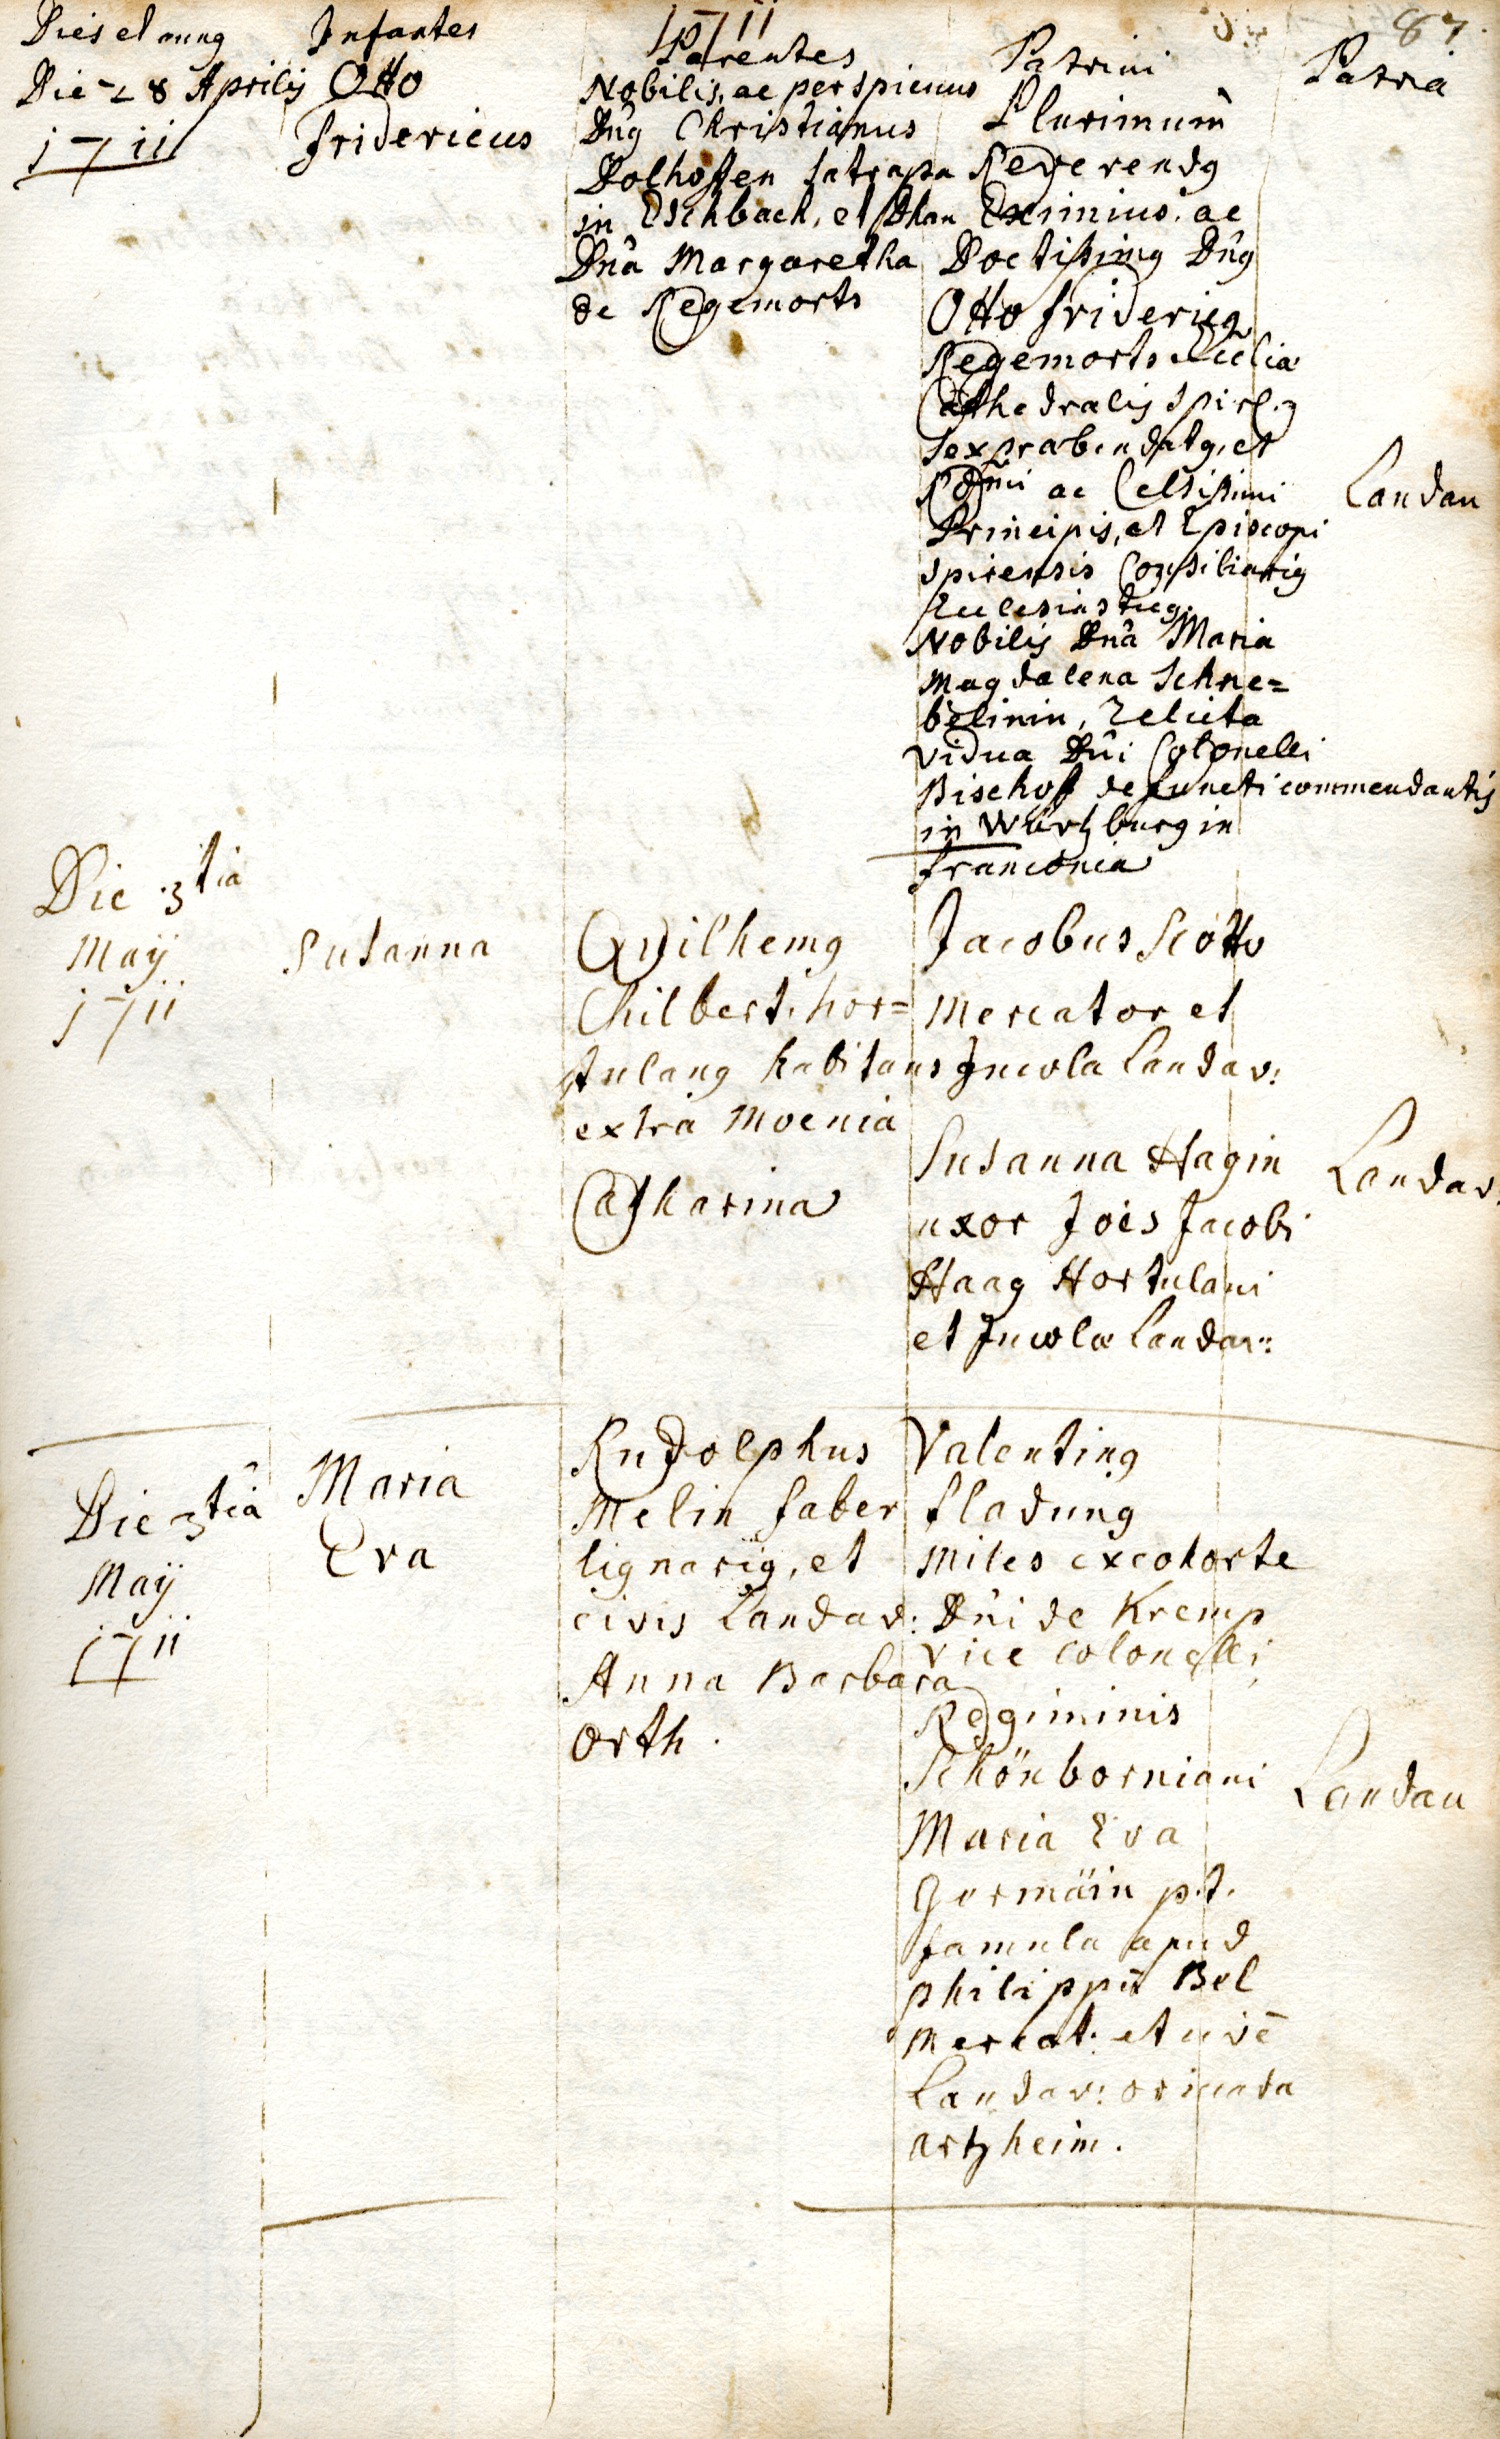 1711
87.
Dies et annus Infantes Parentes Patrini Patria
Die 28 Aprilis
1711
Otto
Fridericus
Nobilis, ac perspicuus
Dñus Christianus
Dolhoffen satrapa
in Eschbach, et Dhan
Dña Margaretha
de Regemorts
Plurimum
Reverendus
Eximius, ac
Doctissimus Dñus
Otto Fridericus
Regemorts Eccliæ
Cathedralis Spirensis
sexpræbendatus, et
Rdmi ac Celsissimi
Principis, et Episcopi
Spirensis Consiliarius
Ecclesiasticus.
Nobilis Dña Maria
Magdalena Schne=
belinin, relicta
vidua Dñi Colonelli
Bischoff defuncti commendantis
in Würtzburg in
Franconia
Landau
Die 3tia
Maÿ
1711
Susanna
Guilhemus
Chilbert, hor=
tulanus habitans
extra moenia
Catharina
Jacobus Scotto
Mercator et
Incola Landav:
Susanna Hagin
uxor Jois Jacobi
Haag Hortulani
et Incolæ Landav:
Landav.
Die 3tia
Maÿ
1711
Maria
Eva
Rudolphus
Melin faber
lignarius, et
civis Landav:
Anna Barbara
Orth.
Valentinus
Fladung
Miles ex cohorte
Dñi de Kremp
vice colonelli
Regiminis
Schönborniani
Maria Eva
Germäin p.t.
famula apud
Philippũ Bel
Mercat: et civẽ
Landav: oriunda
artzheim.
Landau